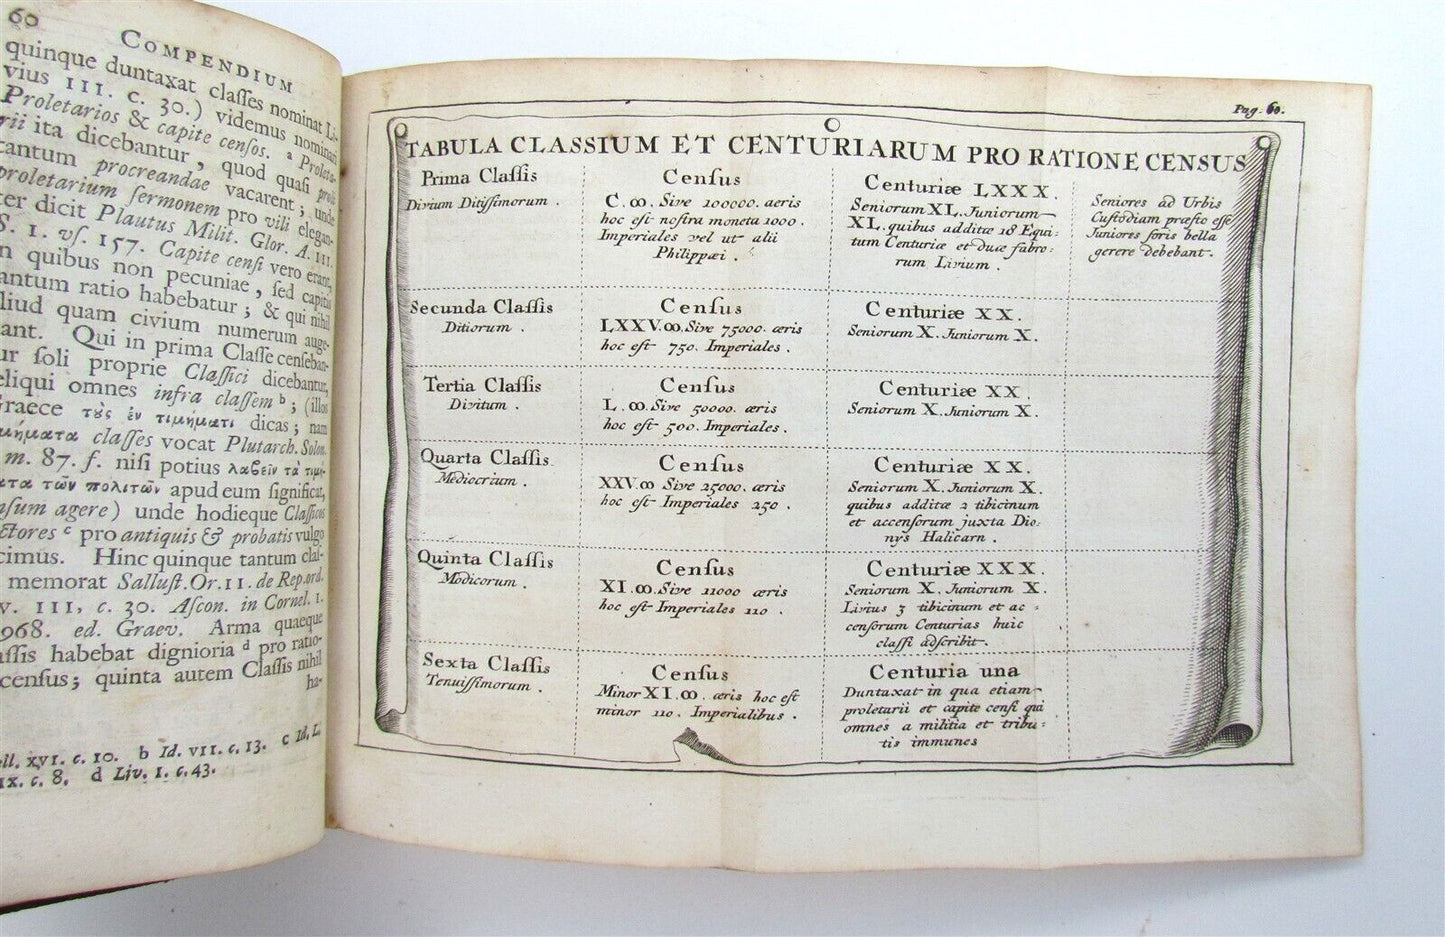 60 COMPENDIUM
quinque duntaxat claſſes nominat Li-
vius III. c. 30.) videmus nominari
Proletarios & capite cenſos. a Proleta-
rii ita dicebantur, quod quaſi proli
tantum procreandae vacarent; unde
proletarium ſermonem pro vili elegan-
ter dicit Plautus Milit. Glor. A. III.
S. I. vſ. 157. Capite cenſi vero erant,
in quibus non pecuniae, ſed capitis
tantum ratio habebatur; & qui nihil
aliud quam civium numerum auge-
bant. Qui in prima Claſſe cenſeban-
tur ſoli proprie Claſſici dicebantur,
reliqui omnes infra claſſem b; (illos
Graece τοὺς ἐν τιμήματι dicas; nam
τιμήματα claſſes vocat Plutarch. Solon.
m. 87. f. niſi potius λαβεῖν τὰ τιμή-
ματα τῶν πολιτῶν apud eum ſignificat,
cenſum agere) unde hodieque Claſſicos
auctores c pro antiquis & probatis vulgo
dicimus. Hinc quinque tantum claſ-
memorat Salluſt. Or. II. de Rep. ord.
v. III, c. 30. Aſcon. in Cornel. I.
968. ed. Graev. Arma quaeque
claſſis habebat dignioria d pro ratio-
cenſus; quinta autem Claſſis nihil
ha-
ll. XVI. c. 10. b Id. VII. c. 13. c Id. L.
IX. c. 8. d Liv. I. c. 43.
Pag. 60.
TABULA CLASSIUM ET CENTURIARUM PRO RATIONE CENSUS
Prima Claſſis
Divium Ditiſſimorum.
Cenſus
C.ↀ. Sive 100000. aeris
hoc eſt noſtra moneta 1000.
Imperiales vel ut alii
Philippæi.
Centuriæ LXXX.
Seniorum XL. Juniorum
XL. quibus additæ 18 Equi:
tum Centuriæ et duæ fabro:
rum Livium.
Seniores ad Urbis
Cuſtodiam præſto eſſe
Juniores foris bella
gerere debebant.
Secunda Claſſis
Ditiorum.
Cenſus
LXXV.ↀ. Sive 75000. æris
hoc eſt 750. Imperiales.
Centuriæ XX.
Seniorum X. Juniorum X.
Tertia Claſſis
Divitum.
Cenſus
L.ↀ. Sive 50000. æris
hoc eſt 500. Imperiales.
Centuriæ XX.
Seniorum X. Juniorum X.
Quarta Claſſis
Mediocrium.
Cenſus
XXV.ↀ Sive 25000. æris
hoc eſt Imperiales 250.
Centuriæ XX.
Seniorum X. Juniorum X.
quibus additæ 2 tibicinum
et accenſorum juxta Dio:
nyſ Halicarn.
Quinta Claſſis
Modicorum.
Cenſus
XI.ↀ. Sive 11000 æris
hoc eſt Imperiales 110.
Centuriæ XXX.
Seniorum X. Juniorum X.
Livius 3 tibicinum et ac:
cenſorum Centurias huic
claſſi adſcribit.
Sexta Claſſis
Tenuiſſimorum.
Cenſus
Minor XI.ↀ. æris hoc eſt
minor 110. Imperialibus.
Centuria una
Duntaxat in qua etiam
proletarii et capite cenſi qui
omnes a militia et tribu:
tis immunes